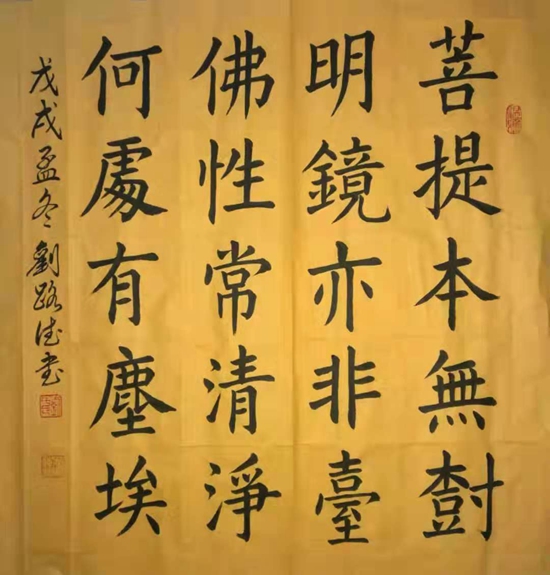 菩提本無樹
明鏡亦非臺
佛性常清淨
何處有塵埃
戊戌孟冬劉路書